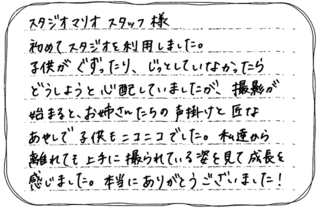 スタジオマリオ スタッフ 様
初めてスタジオを利用しました。
子供がぐずったり、じっとしていなかったら
どうしようと心配していましたが、撮影が
始まると、お姉さんたちの声掛けと匠な
あやしで子供もニコニコでした。私達から
離れても上手に撮られている姿を見て成長を
感じました。本当にありがとうございました!